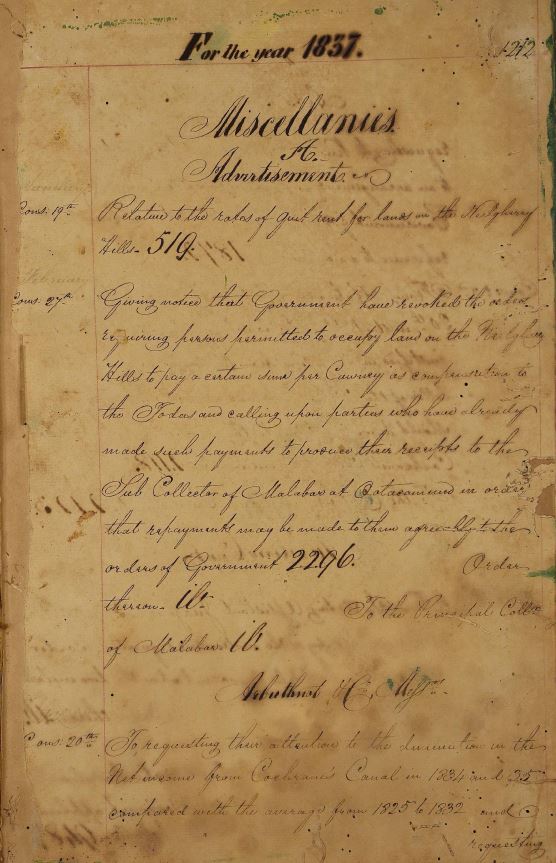 For the year 1837.
1212
Miscellanies.
A.
Advertisement.
Cons. 19th Relative to the rates of quit rent for lands on the Neilgherry
Hills - 519.
February
Cons. 27th Giving notice that Government have revoked the orders
requiring persons permitted to occupy land on the Neilgherry
Hills to pay a certain sum per Cawney as compensation to
the Todas and calling upon parties who have already
made such payments to produce their receipts to the
Sub Collector of Malabar at Ootacamund in order
that repayments may be made to them agreeably to the
orders of Government 2296. Order
thereon - ib. To the Principal Collr
of Malabar ib.
Arbuthnot & Co, Messrs.
Cons. 20th To, requesting their attention to the diminution in the
Net income from Cochrane's Canal in 1834 and 35
compared with the average from 1825 to 1832 and
requesting